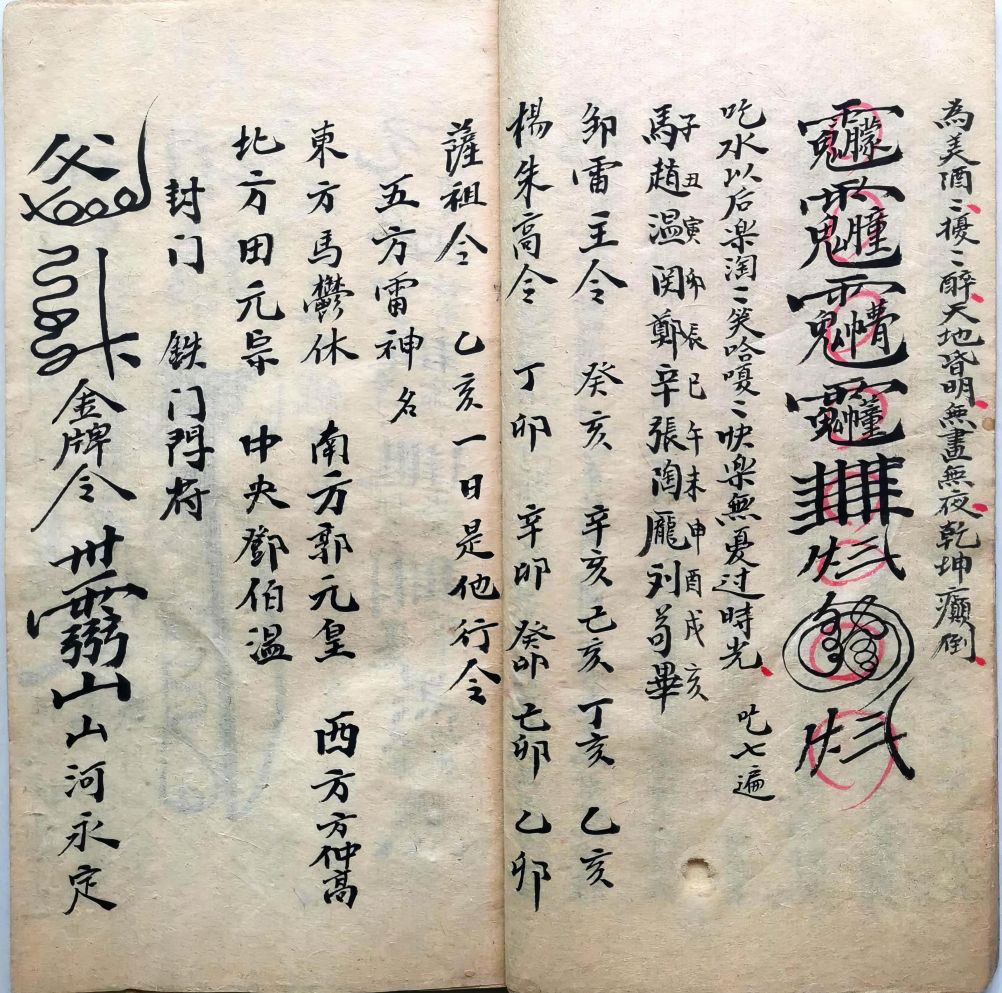 為美酒〻擾〻醉天地皆明無晝無夜乾坤癲倒
吃水以后楽淘〻笑哈嗄〻快楽無憂过時光 吃七遍
子丑寅卯辰巳午未申酉戌亥
馬趙温関鄭辛張陶龐刘苟畢
卸雷主令 癸亥 辛亥 己亥 丁亥 乙亥
楊朱高令 丁卯 辛卯 癸卯 己卯 乙卯
薩祖令 乙亥一日是他行令
五方雷神名
東方馬鬱休 南方郭元皇 西方方仲高
北方田元宗 中央鄧伯温
封门 鉄门閂符
金牌令 山 山河永定